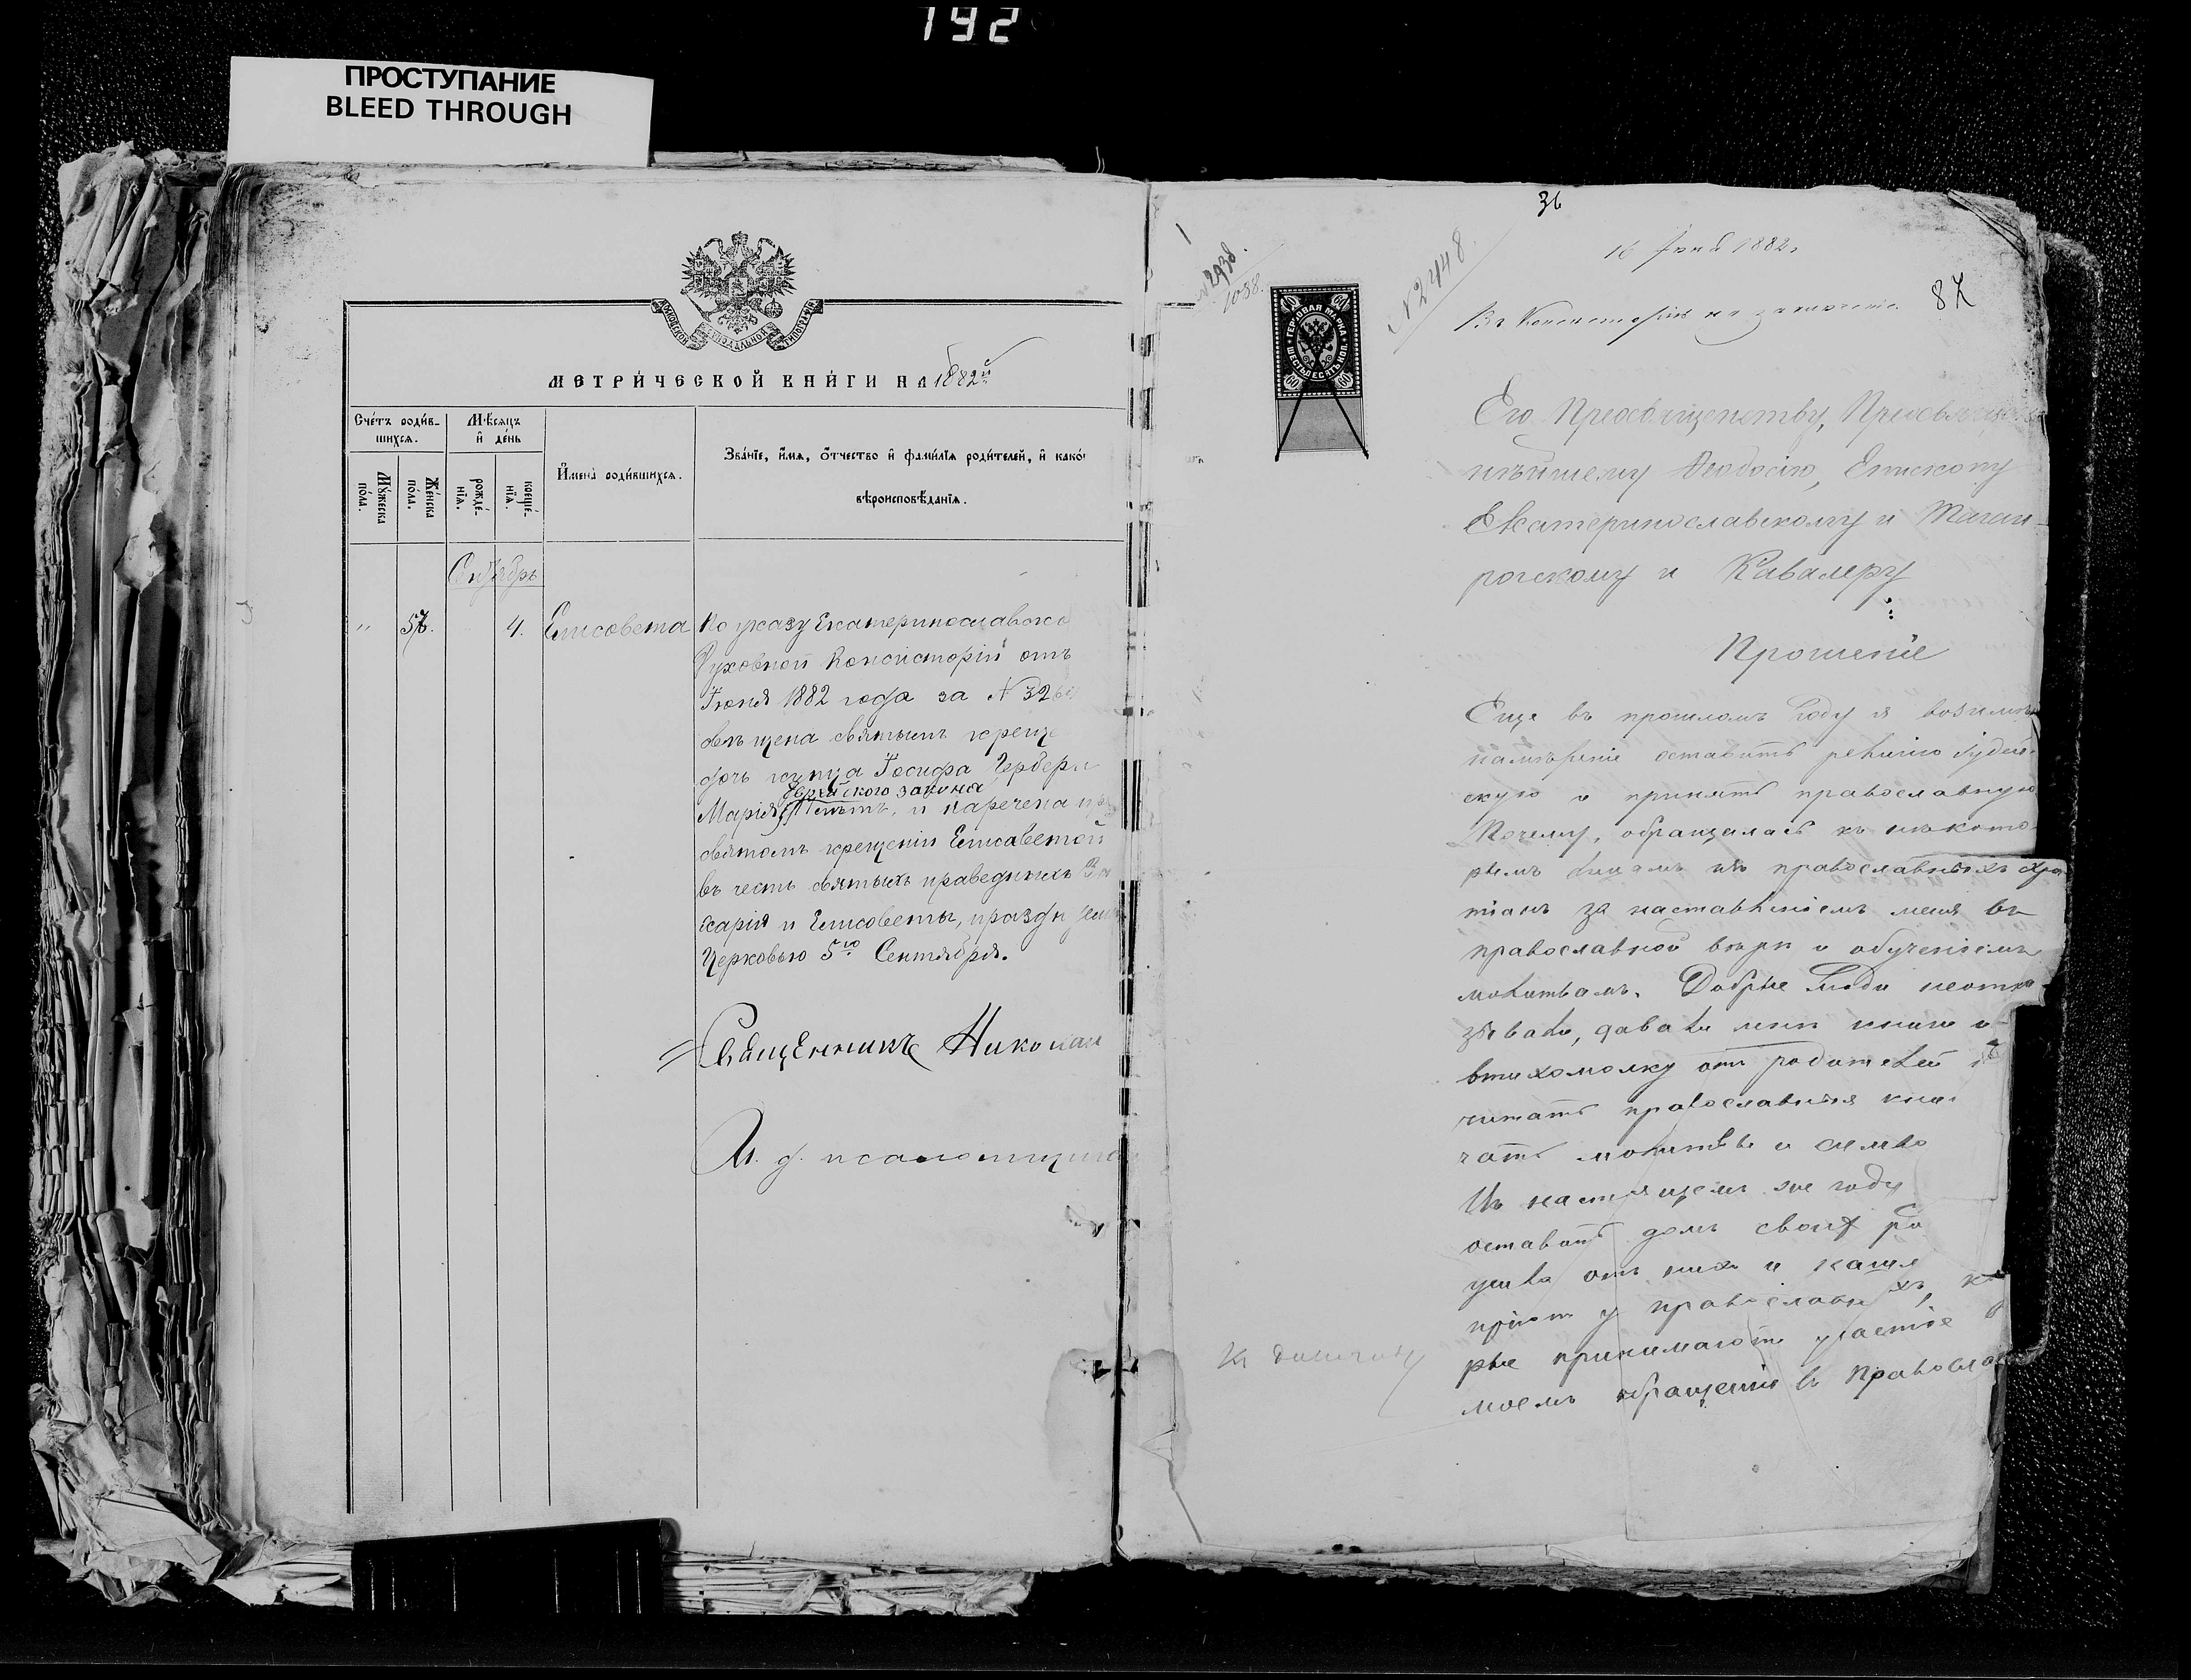 192
ПРОСТУПАНИЕ
BLEED THROUGH
МЕТРИ́ЧЕСКОЙ КНИ́ГИ НА 1882й
Сче́тъ роди́в-
шихся.
Мѣ́сяцъ
и҆ де́нь
Мꙋ́жеска
по́ла.
Же́нска
по́ла.
рожде́-
нїѧ.
креще́-
нїѧ.
И҆мена̀ роди́вшихся.
Зва́нїе, и҆́мѧ, о҆́тчество и҆ фами́лїѧ роди́телей, и҆ како́г
вѣроисповѣ́данїѧ.
" 57. 4. Елисовета По указу Екатеринославско
Духовной Консисторіи отъ
Іюня 1882 года за №326
свѣщена святымъ креще
дочь купца Іосифа Гербера
Еврейскаго закона
Марія и наречена пр
святомъ крещеніи Елисаветой
въ честь святыхъ праведныхъ За
харія и Елисоветы, праздн
Церковью 5го Сентября.
Священникъ Николай
И. д. псаломщика
36
16 1882
87
№2448.
1038.
ГЕРБОВАЯ МАРКА
ШЕСТЬДЕСЯТЪ КОП.
60 60
60 60
Въ Консисторію на
Его Преосвященству, Преосвящен
нѣйшему Ѳеодосію, Епископу
Екатеринославскому и Таган-
рогскому и Кавалеру
Прошеніе
Еще въ прошломъ году я возимѣла
намѣреніе оставить религію Іудей-
скую и принять православную
Почему, обращалась къ нѣкото-
рымъ лицамъ изъ православныхъ хрис
тіанъ за наставленіемъ меня въ
православной вѣрѣ и обученіемъ
молитвамъ. Добрые люди неотка
зывали, давали мнѣ книги и
втихомолку отъ родителей
читать православныя кни
чать молитвы и симво
Въ настоящемъ же году
оставить домъ своихъ ро
ушла отъ нихъ и нашла
пріютъ у православныхъ, ко
рые принимаютъ участіе в
моемъ обращеніи въ Правосла